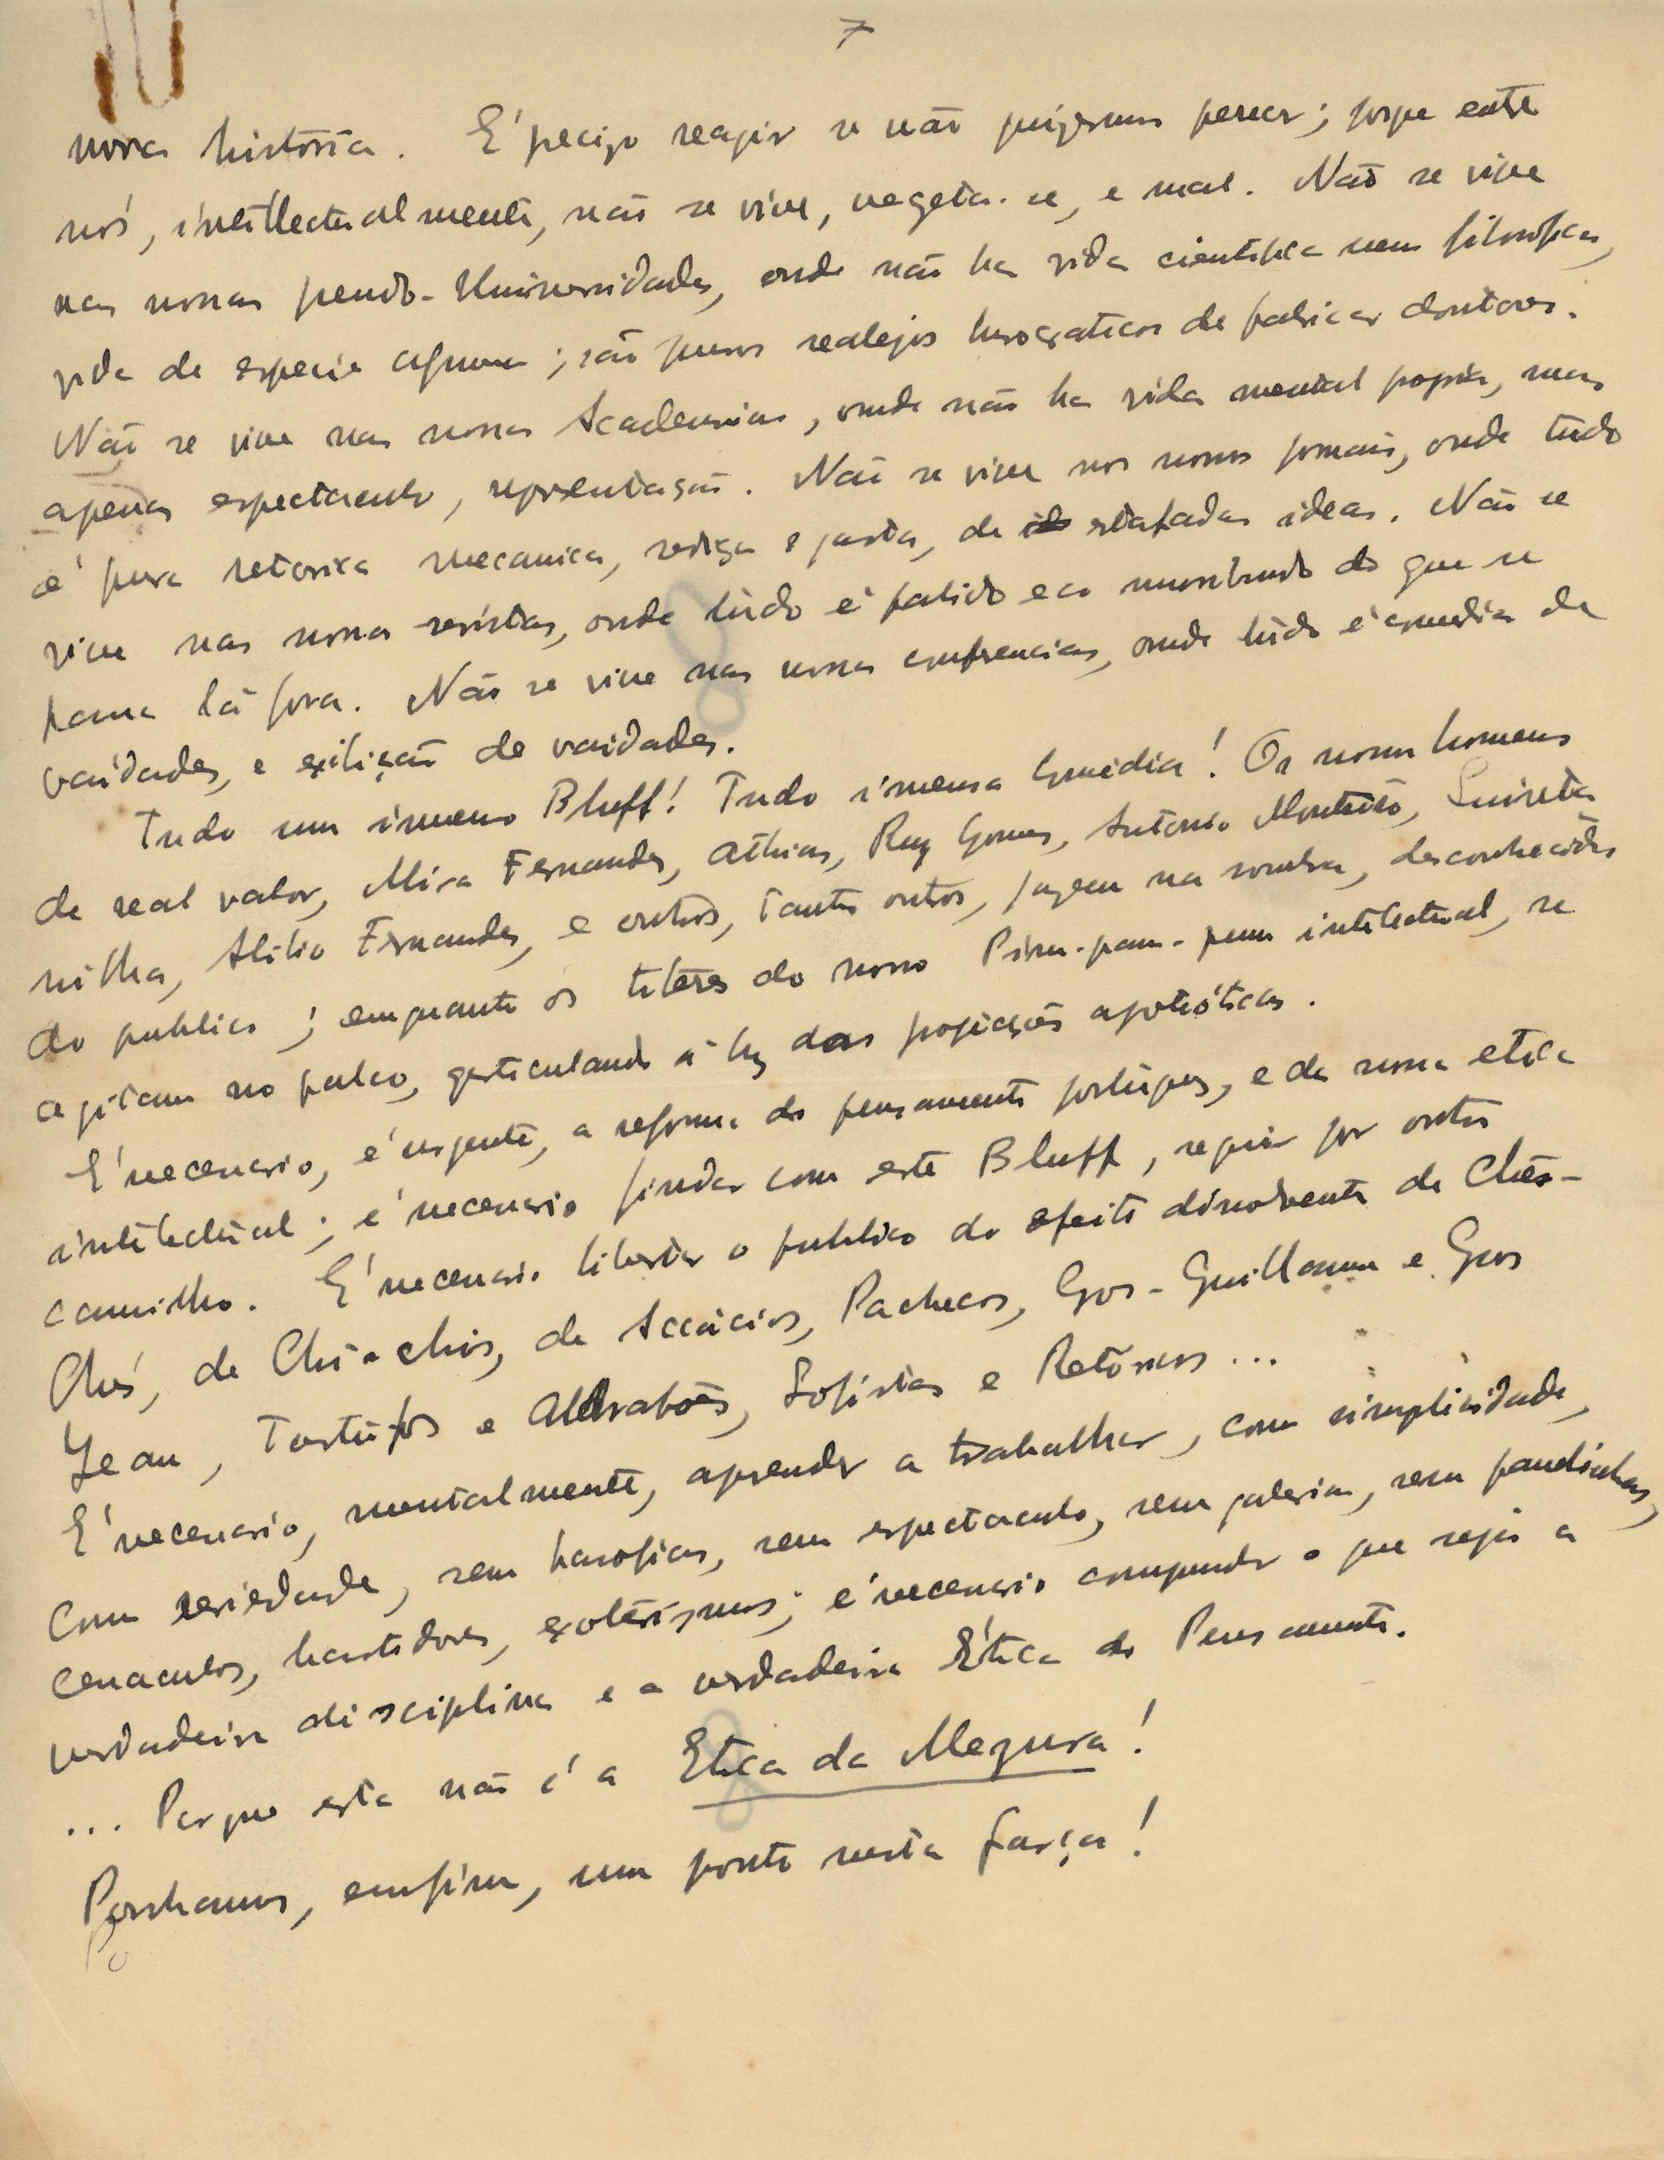 7
nossa história. É precizo reagir se não quizermos perecer; porque entre
nós, intellectualmente, não se vive, vegeta-se, e mal. Não se vive
nas nossas pseudo-Universidades, onde não ha vida scientifica nem filosofica,
vida de especie alguma; são puros realejos burocraticos de fabricar doutores.
Não se vive nas nossas Academias, onde não ha vida mental propria, mas
apenas espectaculo, representação. Não se vive nos nossos jornais, onde tudo
é pura retorica mecanica, e gasta, de estafadas ideas. Não se
vive nas nossas revistas, onde tudo é palido eco do que se
passa lá fora. Não se vive nas nossas conferencias, onde tudo é comedia de
vaidades, e exibição de vaidades.
Tudo um imenso Bluff! Tudo imensa Comédia! Os nossos homens
de real valor, Mira Fernandes, Athias, Ruy Gomes, Antonio Monteiro,
Abilio Fernandes, e outros, tantos outros, jazem na sombra, desconhecidos
do publico; emquanto os titeres do nosso Pim-pam-pum intelectual, se
agitam no palco, gesticulando á luz das projecções apoteóticas.
É necessario, é urgente, a reforma do pensamento português, e da nossa etica
intelectual; é necessario findar com este Bluff, seguir por outro
caminho. É necessario libertar o publico do efeito dissolvente de Chés-
Chés, de Chi-chis, de Accácios, Pachecos, Gros-Guillaume e Gros
Jean, Tartufos e Aldrabões, Sofistas e Retóricos...
É necessario, mentalmente, aprender a trabalhar, com simplicidade,
com seriedade, sem basofias, sem espectaculo, sem galerias, sem panelinhas,
cenaculos, bastidores, exoterismos; é necessario compreender o que seja a
verdadeira disciplina e a verdadeira Ética do Pensamento.
... Porque esta não é a Etica da Mezura!
Ponhamos, emfim, um ponto nesta farça!